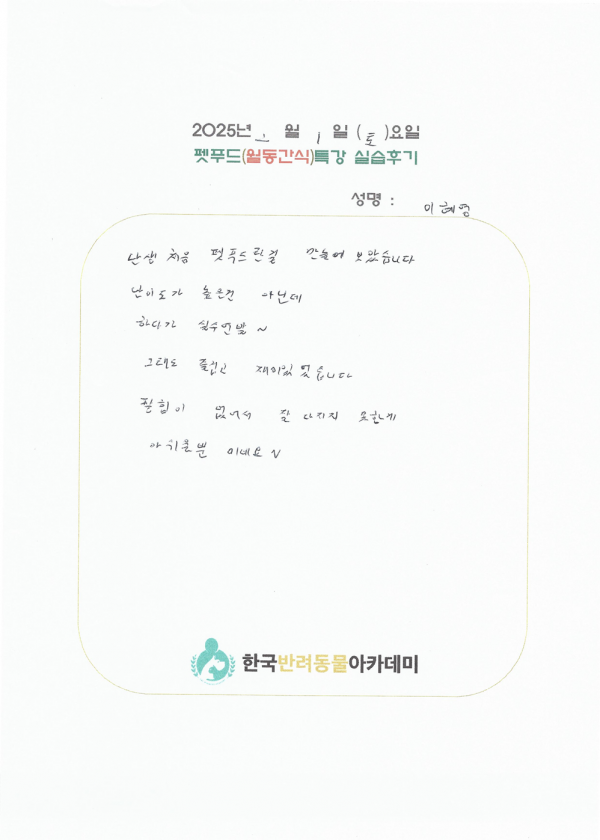 2025년 2 월 1 일 (토)요일
펫푸드(월동간식)특강 실습후기
성명 : 이혜영
난생 처음 펫푸드란걸 만들어 보았습니다
난이도가 높은건 아닌데
하다가 실수연발 ~
그래도 즐겁고 재미있었습니다
팔힘이 없어서 잘 다지지 못한게
아쉬울뿐 이네요 ~
한국반려동물아카데미